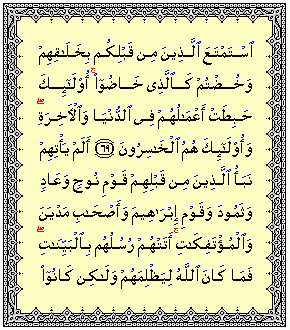 ٱسْتَمْتَعَ ٱلَّذِينَ مِن قَبْلِكُم بِخَلَٰقِهِمْ
وَخُضْتُمْ كَٱلَّذِى خَاضُوٓا۟ ۚ أُو۟لَٰٓئِكَ
حَبِطَتْ أَعْمَٰلُهُمْ فِى ٱلدُّنْيَا وَٱلْءَاخِرَةِ ۖ
وَأُو۟لَٰٓئِكَ هُمُ ٱلْخَٰسِرُونَ ﴿٦٩﴾ أَلَمْ يَأْتِهِمْ
نَبَأُ ٱلَّذِينَ مِن قَبْلِهِمْ قَوْمِ نُوحٍ وَعَادٍ
وَثَمُودَ وَقَوْمِ إِبْرَٰهِيمَ وَأَصْحَٰبِ مَدْيَنَ
وَٱلْمُؤْتَفِكَٰتِ ۚ أَتَتْهُمْ رُسُلُهُم بِٱلْبَيِّنَٰتِ ۖ
فَمَا كَانَ ٱللَّهُ لِيَظْلِمَهُمْ وَلَٰكِن كَانُوٓا۟